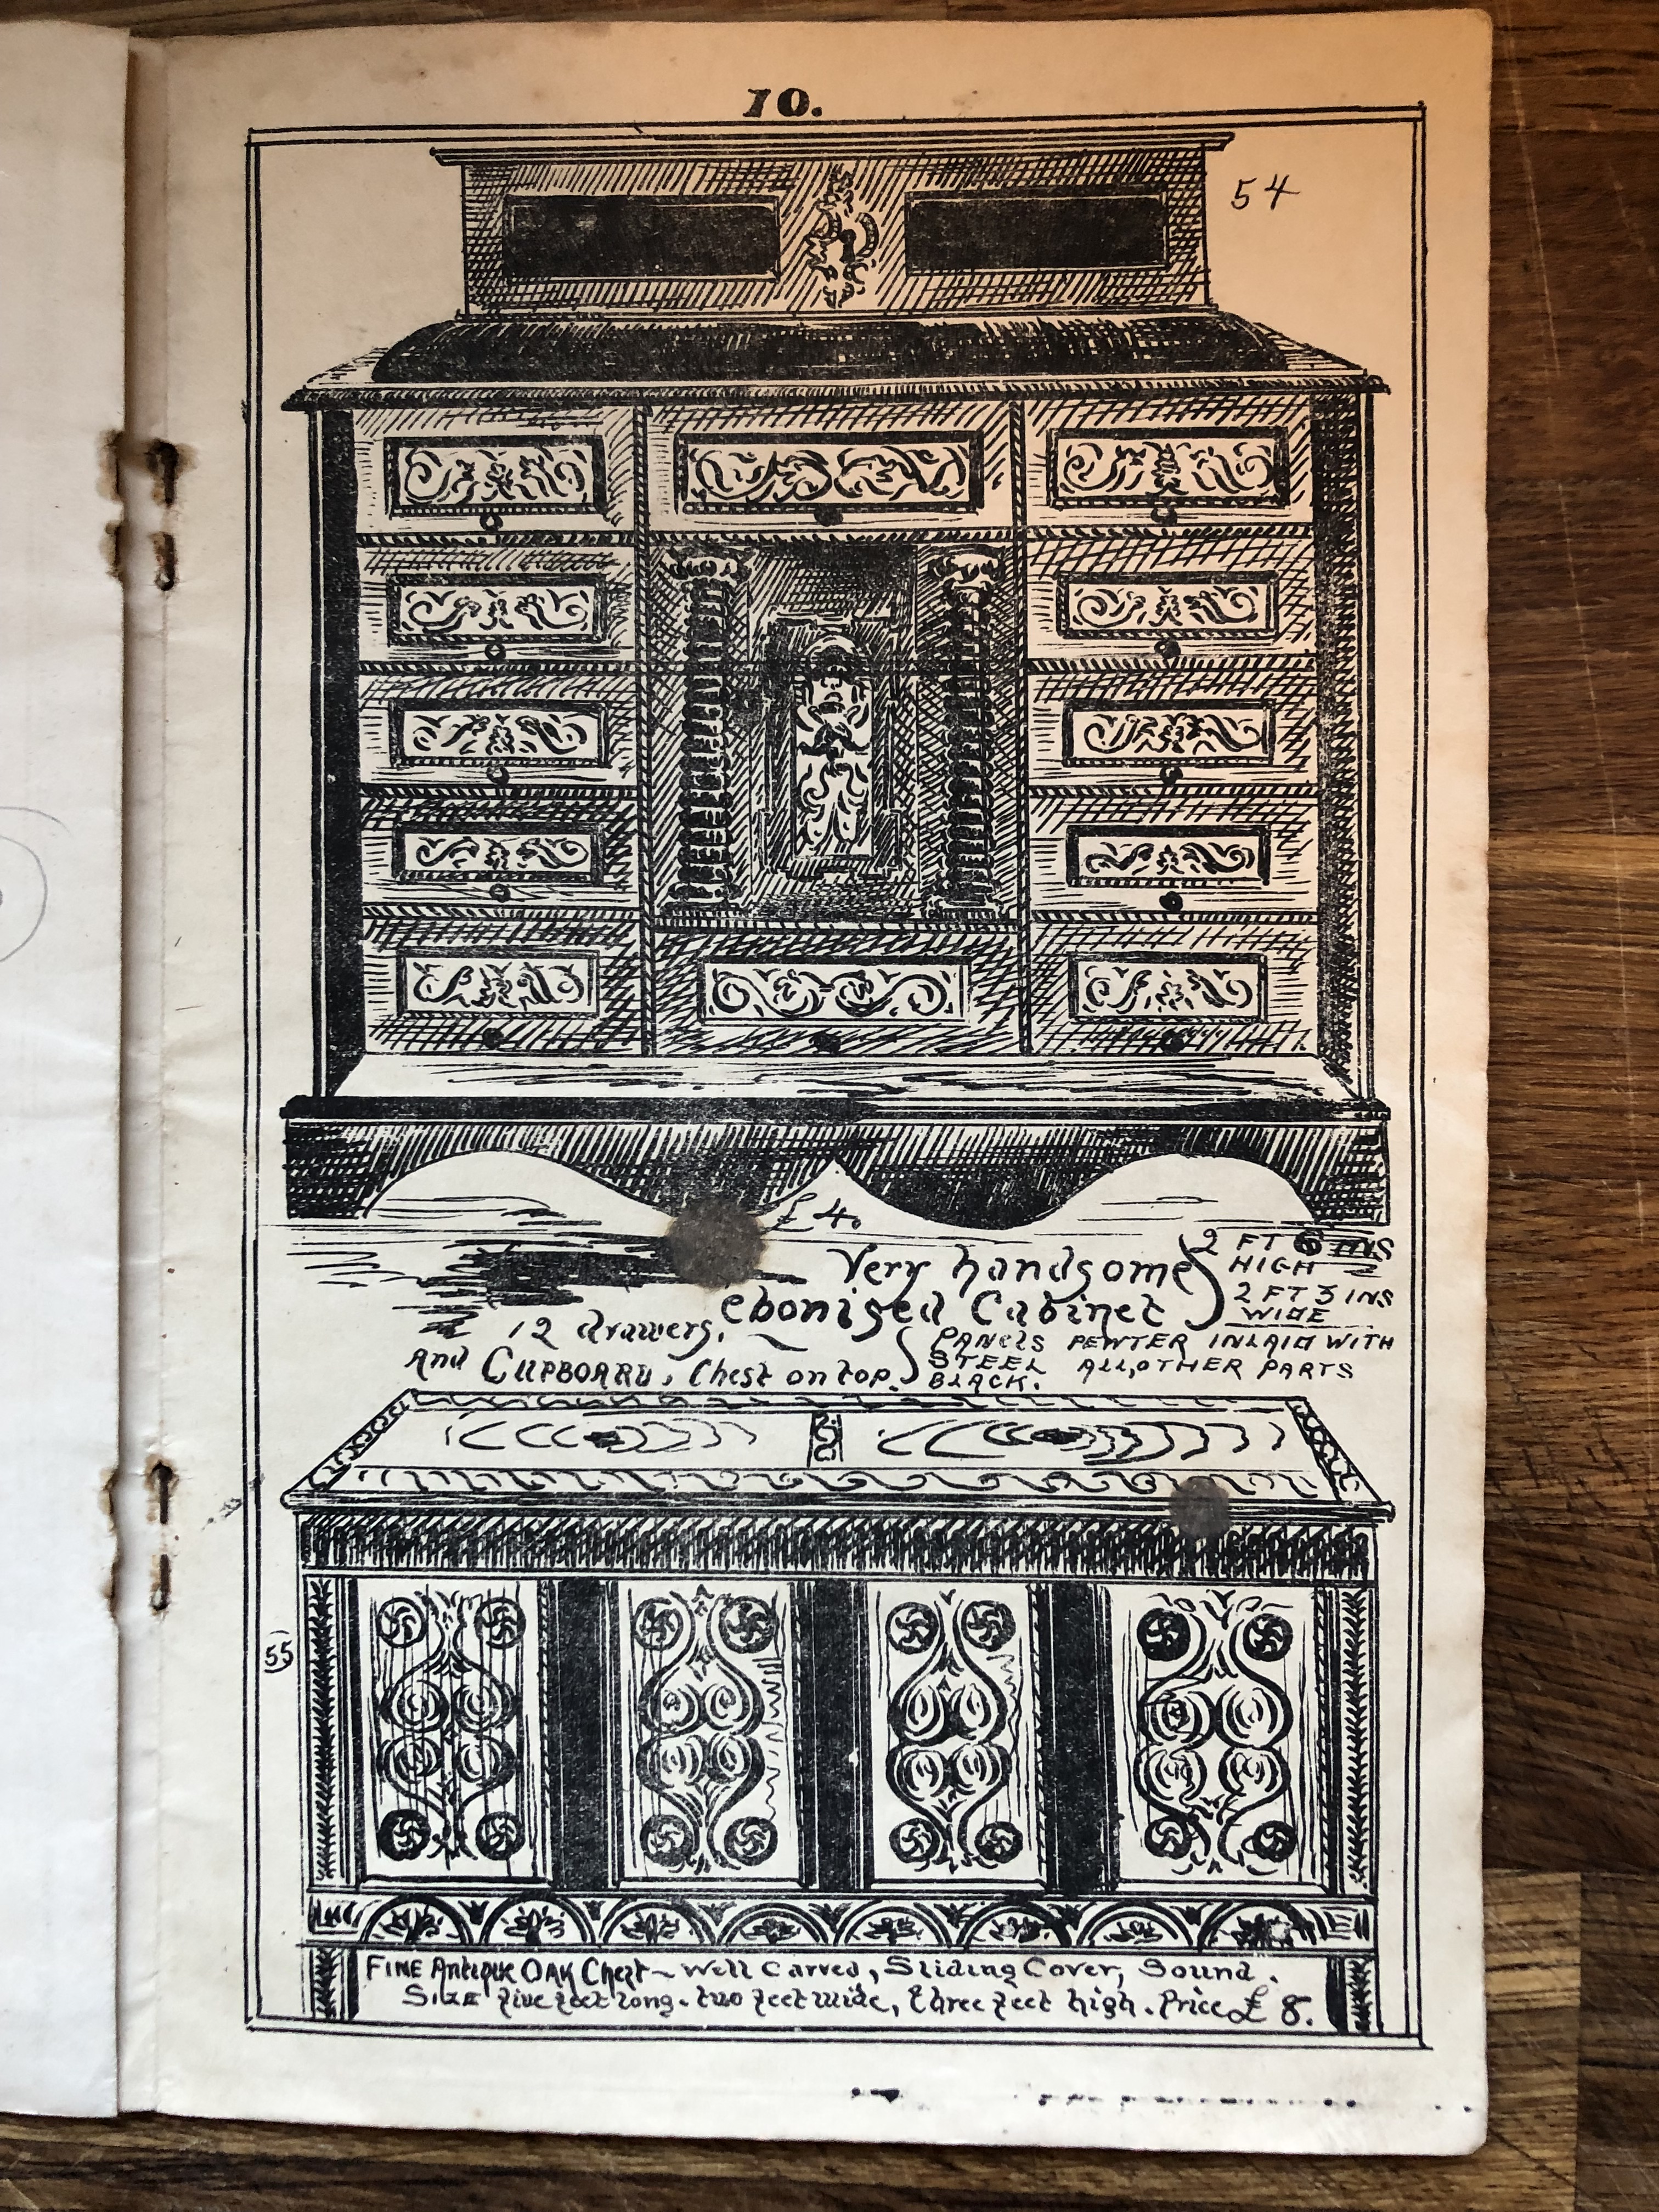 10.
54
£4.
Very handsome
ebonised Cabinet
2 FT 6 INS
HIGH
2 FT 3 INS
WIDE
12 drawers.
and CUPBOARD, Chest on top.
PANELS PEWTER INLAID WITH
STEEL ALL, OTHER PARTS
BLACK.
55
FINE Antique OAK Chest ~ Well Carved, Sliding Cover, Sound.
SIZE five feet long. two feet wide, three feet high. Price £8.